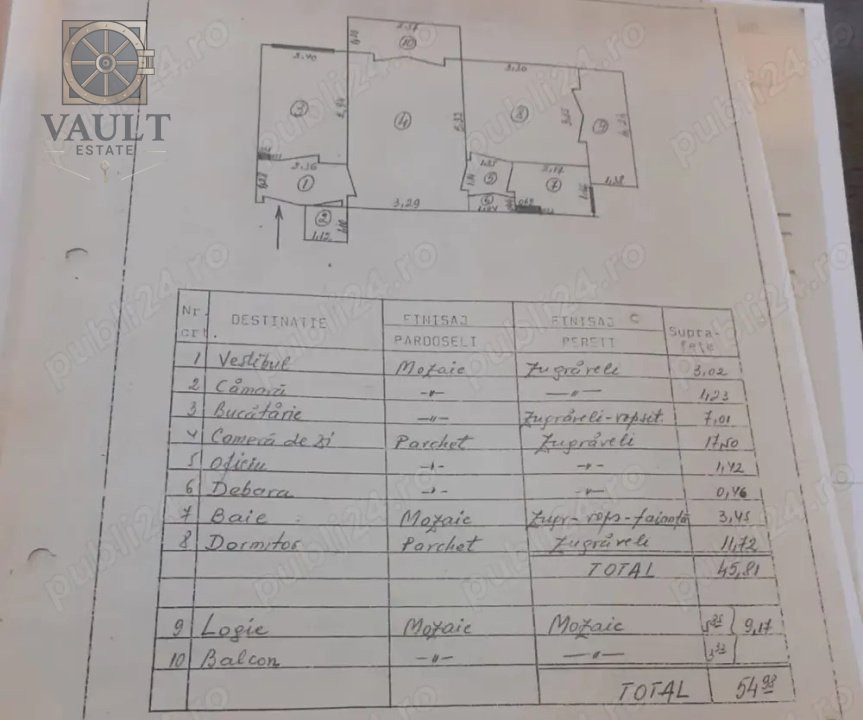 VAULT
ESTATE
publi24.ro
2,40
10
3
4
8
9
3,30
2,36
1
5
7
1,38
2
1,12
3,29
Nr. crt. DESTINATIE FINISAJ PARDOSELI FINISAJ PERETI Supra-fețe
1 Vestibul Mozaic Zugrăveli 3,02
2 Cămară —"— —"— 1,23
3 Bucătărie —"— Zugrăveli-vopsit. 7,01
4 Cameră de zi Parchet Zugrăveli 17,50
5 Oficiu —"— —"— 1,42
6 Debara —"— —"— 0,46
7 Baie Mozaic Zugr-vops-faianță 3,45
8 Dormitor Parchet Zugrăveli 11,72
TOTAL 45,81
9 Logie Mozaic Mozaic 9,17
10 Balcon —"— —"—
TOTAL 54,98